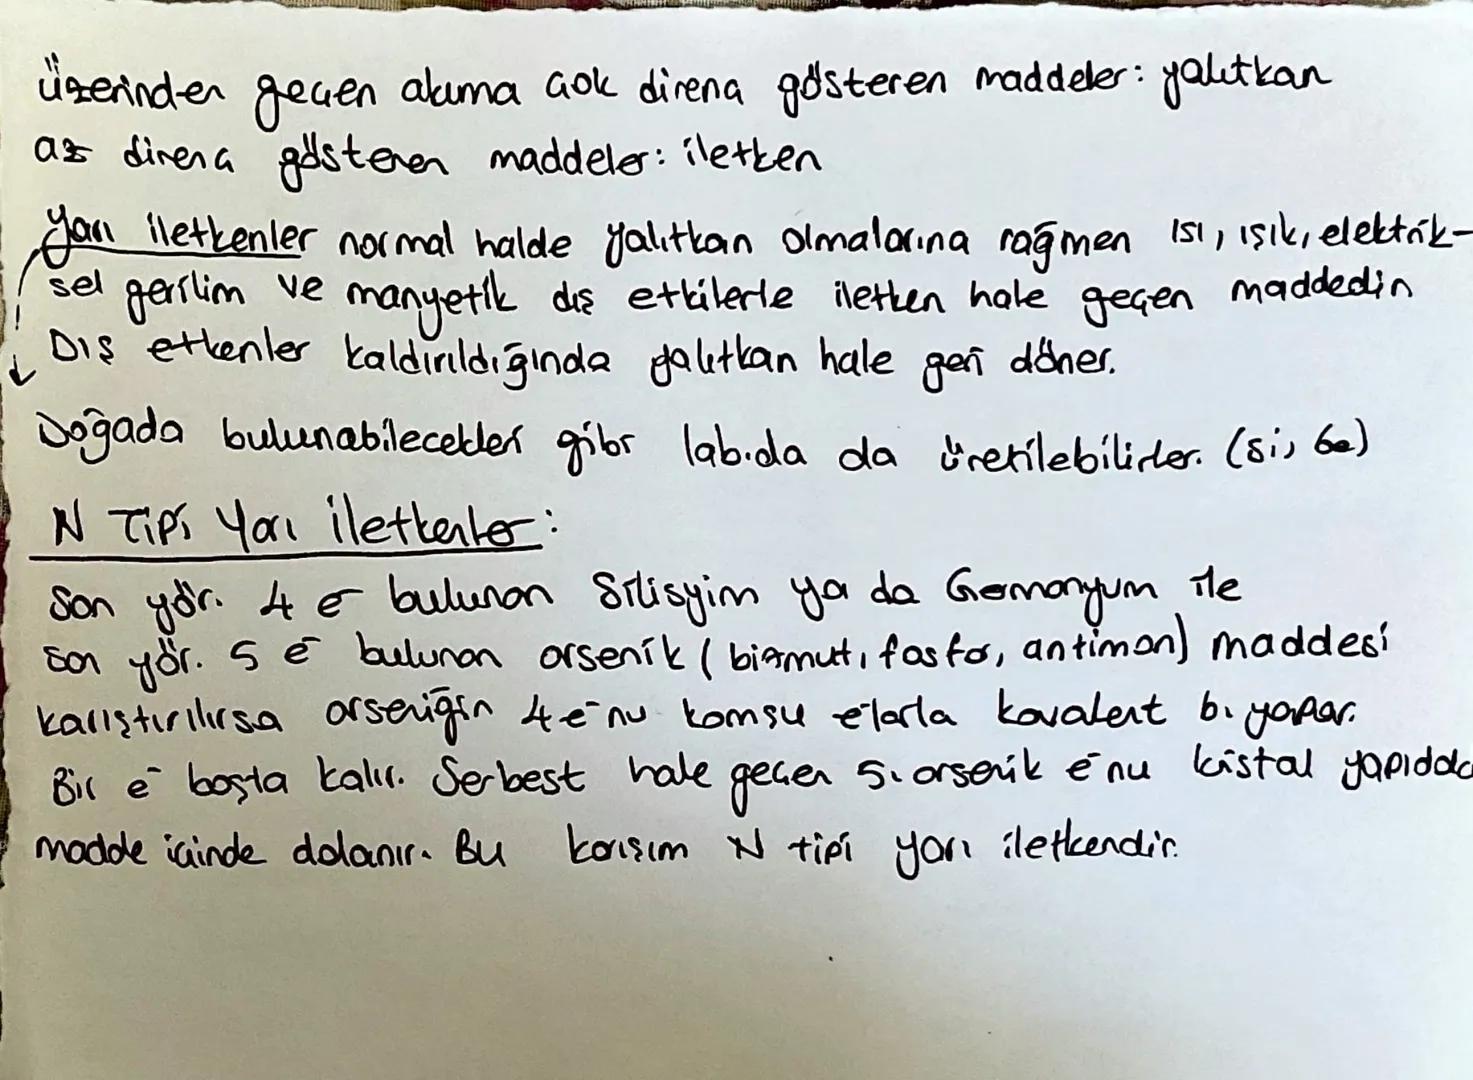 üzerinden geçen akıma çok direnç gösteren maddeler: yalıtkan
az direnç gösteren maddeler: iletken
Yarı iletkenler normal halde yalıtkan olmalarına rağmen ısı, ışık, elektrik-
sel gerilim ve manyetik dış etkilerle iletken hale geçen maddedir
Dış etkenler kaldırıldığında yalıtkan hale geri döner.
Doğada bulunabilecekleri gibi lab.da da üretilebilirler. (Si, Ge)
N Tipi Yarı iletkenler:
Son yör. 4 e⁻ bulunan Silisyim ya da Germanyum ile
son yör. 5 e⁻ bulunan arsenik (bizmut, fosfor, antimon) maddesi
karıştırılırsa arseniğin 4 e⁻nu komşu e⁻larla kovalent b. yapar.
Bir e⁻ boşta kalır. Serbest hale geçen 5. arsenik e⁻nu kristal yapıdaki
madde içinde dolanır. Bu karışım N tipi yarı iletkendir.